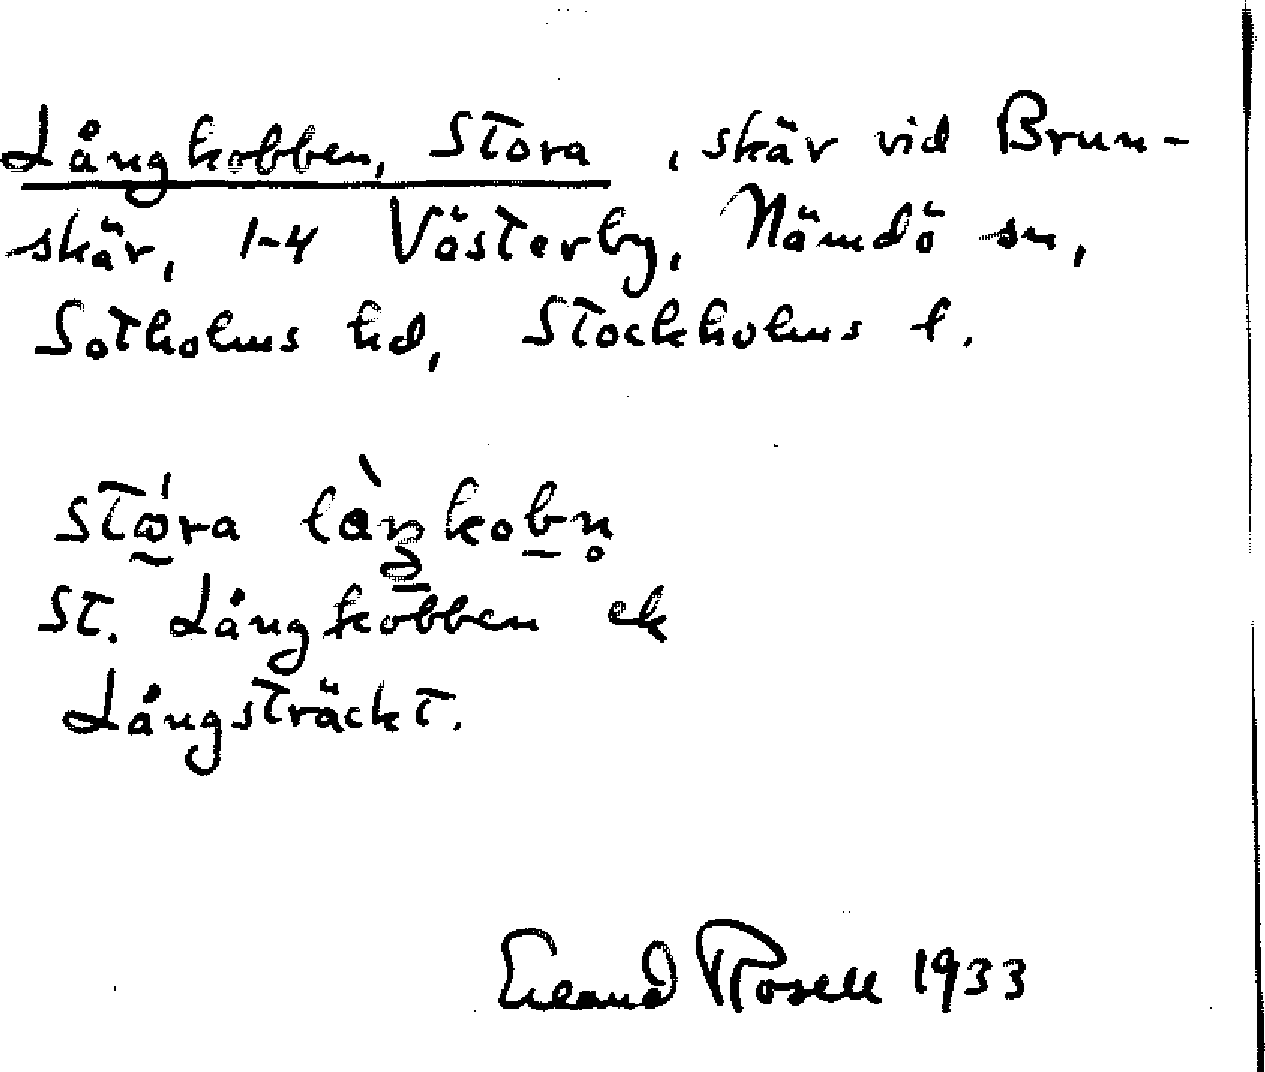 Långkobben, Stora, skär vid Brun-
skär, 1-4 Västerby, Nämdö sn,
Sotholms hd, Stockholms l.
stǿra làŋkobn̥
St. Långkobben ek
Långsträckt.
Erland Rosell 1933